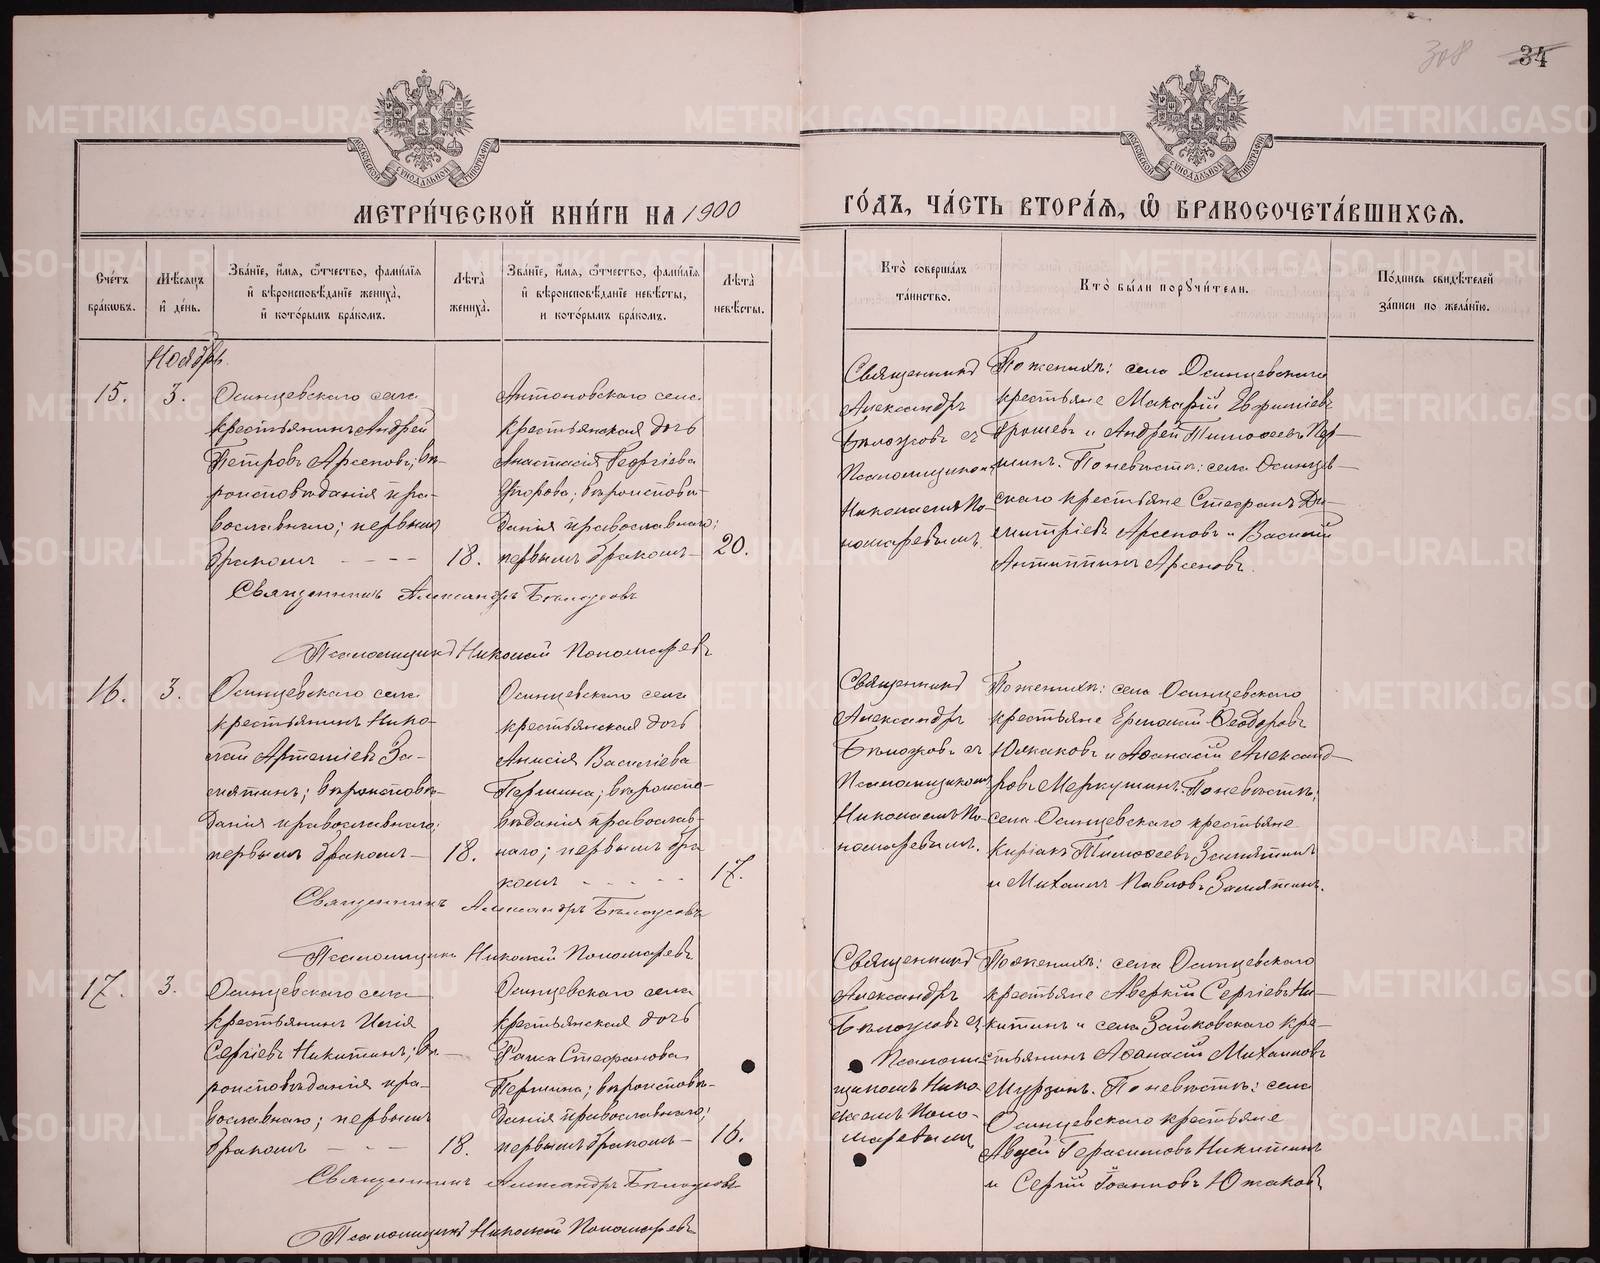 308 34
МЕТРИ́ЧЕСКОЙ КНИ́ГИ НА 1900
ГО́ДЪ, ЧА́СТЬ ВТОРА́Я, Ѡ БРАКОСОЧЕТА́ВШИХСЯ.
Сче́тъ бра́ковъ.
Мѣ́сяцъ и҆ де́нь.
Зва́нїе, и҆́мя, ѻ҆́тчество, фами́лїя и҆ вѣроисповѣ́данїе жениха̀, и҆ кото́рымъ бра́комъ.
Лѣ́та жениха̀.
Зва́нїе, и҆́мя, ѻ҆́тчество, фами́лїя и҆ вѣроисповѣ́данїе невѣ́сты, и кото́рымъ бра́комъ.
Лѣ́та невѣ́сты.
Кто̀ соверша́лъ та́инство.
Кто̀ бы́ли порꙋчи́тели.
По́дпись свидѣ́телей за́писи по жела́нїю.
Ноябрь.
15.
3.
Осинцевскаго села
крестьянинъ Андрей
Петровъ Арсеновъ; вѣ-
роисповѣданія пра-
вославнаго; первымъ
бракомъ - - -
18.
Антоновскаго села
крестьянская дочь
Анастасія Георгіева
вѣроисповѣ-
данія православнаго;
первымъ бракомъ -
20.
Священникъ
Александръ
Бѣлоусовъ съ
Псаломщикомъ
Николаемъ По-
номаревымъ.
По женихѣ: села Осинцевскаго
крестьяне Макарій
и Андрей Тимоѳеевъ Пер-
шинъ. По невѣстѣ: села Осинцев-
скаго крестьяне Стефанъ Ди-
митріевъ Арсеновъ и Василій
Антиппинъ Арсеновъ.
Священникъ Александръ Бѣлоусовъ
Псаломщикъ Николай Пономаревъ
16.
3.
Осинцевскаго села
крестьянинъ Нико-
лай Артеміевъ За-
мятинъ; вѣроисповѣ-
данія православнаго;
первымъ бракомъ -
18.
Осинцевскаго села
крестьянская дочь
Анисія Василіева
Першина; вѣроиспо-
вѣданія православ-
наго; первымъ бра-
комъ - - - -
17.
Священникъ
Александръ
Бѣлоусовъ съ
Псаломщикомъ
Николаемъ По-
номаревымъ.
По женихѣ: села Осинцевскаго
крестьяне Ермолай Ѳеодоровъ
Южаковъ и Аѳанасій Александ-
ровъ Меркушинъ. По невѣстѣ:
села Осинцевскаго крестьяне
Киріакъ Тимоѳеевъ Замятинъ
и Михаилъ Павловъ Замятинъ.
Священникъ Александръ Бѣлоусовъ
Псаломщикъ Николай Пономаревъ
17.
3.
Осинцевскаго села
крестьянинъ Илія
Сергіевъ Никитинъ; вѣ-
роисповѣданія пра-
вославнаго; первымъ
бракомъ - - -
18.
Осинцевскаго села
крестьянская дочь
Раиса Стефанова
Першина; вѣроисповѣ-
данія православнаго;
первымъ бракомъ -
16.
Священникъ
Александръ
Бѣлоусовъ съ
Псалом-
щикомъ Нико-
лаемъ Поно-
маревымъ
По женихѣ: села Осинцевскаго
крестьяне Аверкій Сергіевъ Ни-
китинъ и села Зайковскаго кре-
стьянинъ Аѳанасій Михаиловъ
Мурзинъ. По невѣстѣ: села
Осинцевскаго крестьяне
Авдей Герасимовъ Никитинъ
и Сергій Іоанновъ Южаковъ
Священникъ Александръ Бѣлоусовъ
Псаломщикъ Николай Пономаревъ